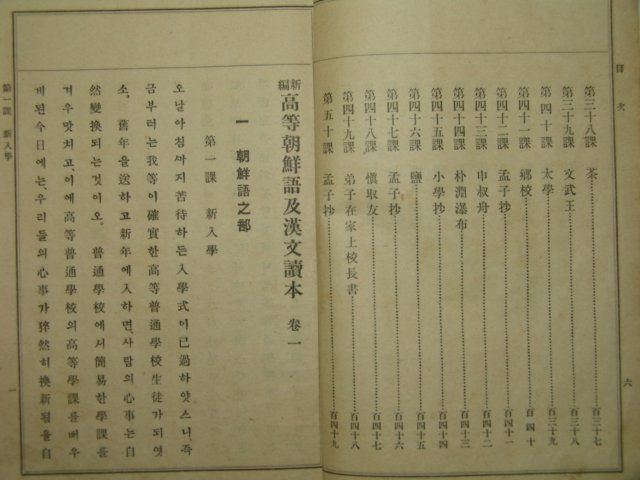 目次
第三十八課 茶 百三十七
第三十九課 文武王 百三十八
第四十課 太學 百三十九
第四十一課 鄕校 百四十
第四十二課 孟子抄 百四十一
第四十三課 申叔舟 百四十二
第四十四課 朴淵瀑布 百四十三
第四十五課 小學抄 百四十四
第四十六課 鹽 百四十五
第四十七課 孟子抄 百四十六
第四十八課 愼取友 百四十七
第四十九課 弟子在家上校長書 百四十八
第五十課 孟子抄 百四十九
六
新編 高等朝鮮語及漢文讀本 卷一
一 朝鮮語之部
第一課 新入學
오날아참까지苦待하든入學式이已過하얏스니、즉
금부터는我等이確實한高等普通學校生徒가되엿
소。 舊年을送하고新年에入하면、사람의心事는自
然變換되는것이오。 普通學校에서簡易한學課를
겨우맛치고、이에高等普通學校의高等學課를배우
게된今日에는、우리들의心事가猝然히換新됨을自
第一課 新入學
一